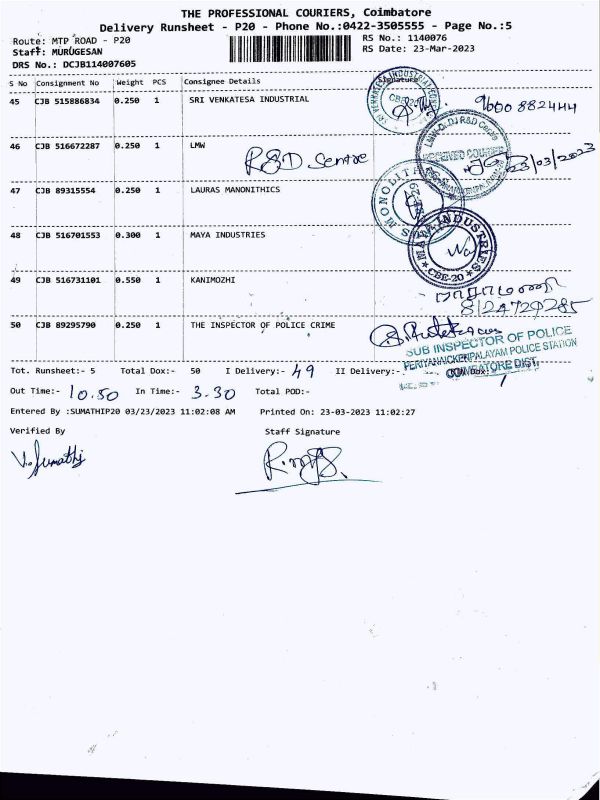 THE PROFESSIONAL COURIERS, Coimbatore
Delivery Runsheet - P20 - Phone No.:0422-3505555 - Page No.:5
Route: MTP ROAD - P20 RS No.: 1140076
Staff: MURUGESAN RS Date: 23-Mar-2023
DRS No.: DCJB114007605
S No Consignment No Weight PCS Consignee Details Signature
45 CJB 515886834 0.250 1 SRI VENKATESA INDUSTRIAL 9600882444
46 CJB 516672287 0.250 1 LMW
R&D Centre 23/03/2023
47 CJB 89315554 0.250 1 LAURAS MANONITHICS
48 CJB 516701553 0.300 1 MAYA INDUSTRIES
MAYA INDUSTRIES
CBE-20
49 CJB 516731101 0.550 1 KANIMOZHI
8124729285
50 CJB 89295790 0.250 1 THE INSPECTOR OF POLICE CRIME
SUB INSPECTOR OF POLICE
PERIYANAICKENPALAYAM POLICE STATION
COIMBATORE DIST.
Tot. Runsheet:- 5 Total Dox:- 50 I Delivery:- 49 II Delivery:-
Out Time:- 10.50 In Time:- 3.30 Total POD:-
Entered By :SUMATHIP20 03/23/2023 11:02:08 AM Printed On: 23-03-2023 11:02:27
Verified By Staff Signature
V. Sumathi